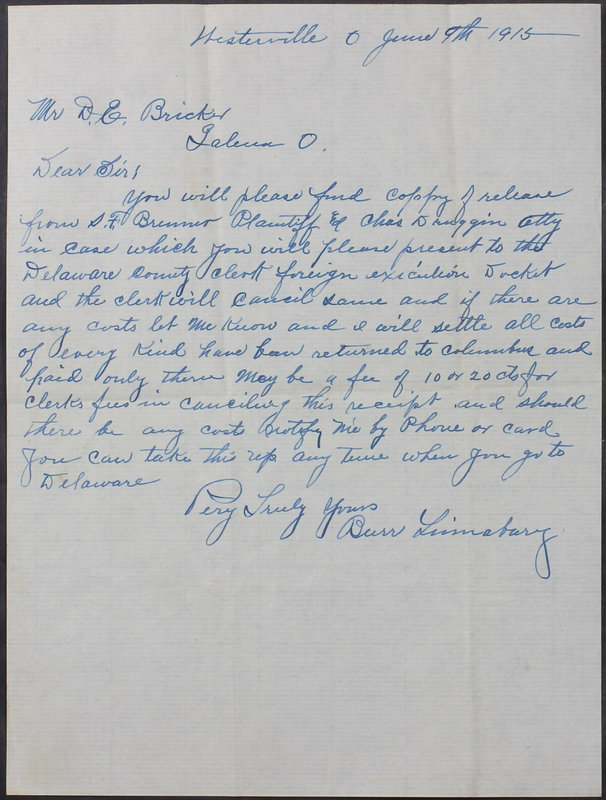 Westerville O June 9th 1915
Mr D. E. Bricker
Galena O.
Dear Sir;
You will please find coppy of release
from S. F. Brenner Plantiff & Chas Druggin atty
in case which you will please present to the
Delaware county clerk foreign execution Docket
and the clerk will cancil same and if there are
any costs let me Know and I will settle all costs
of every Kind have been returned to columbus and
paid only there may be a fee of 10 or 20 cts for
clerks fees in canciling this receipt and should
there be any cost Notify me by Phone or card
You can take this up any time when you go to
Delaware
Very Truly Yours
Burr Linnabary